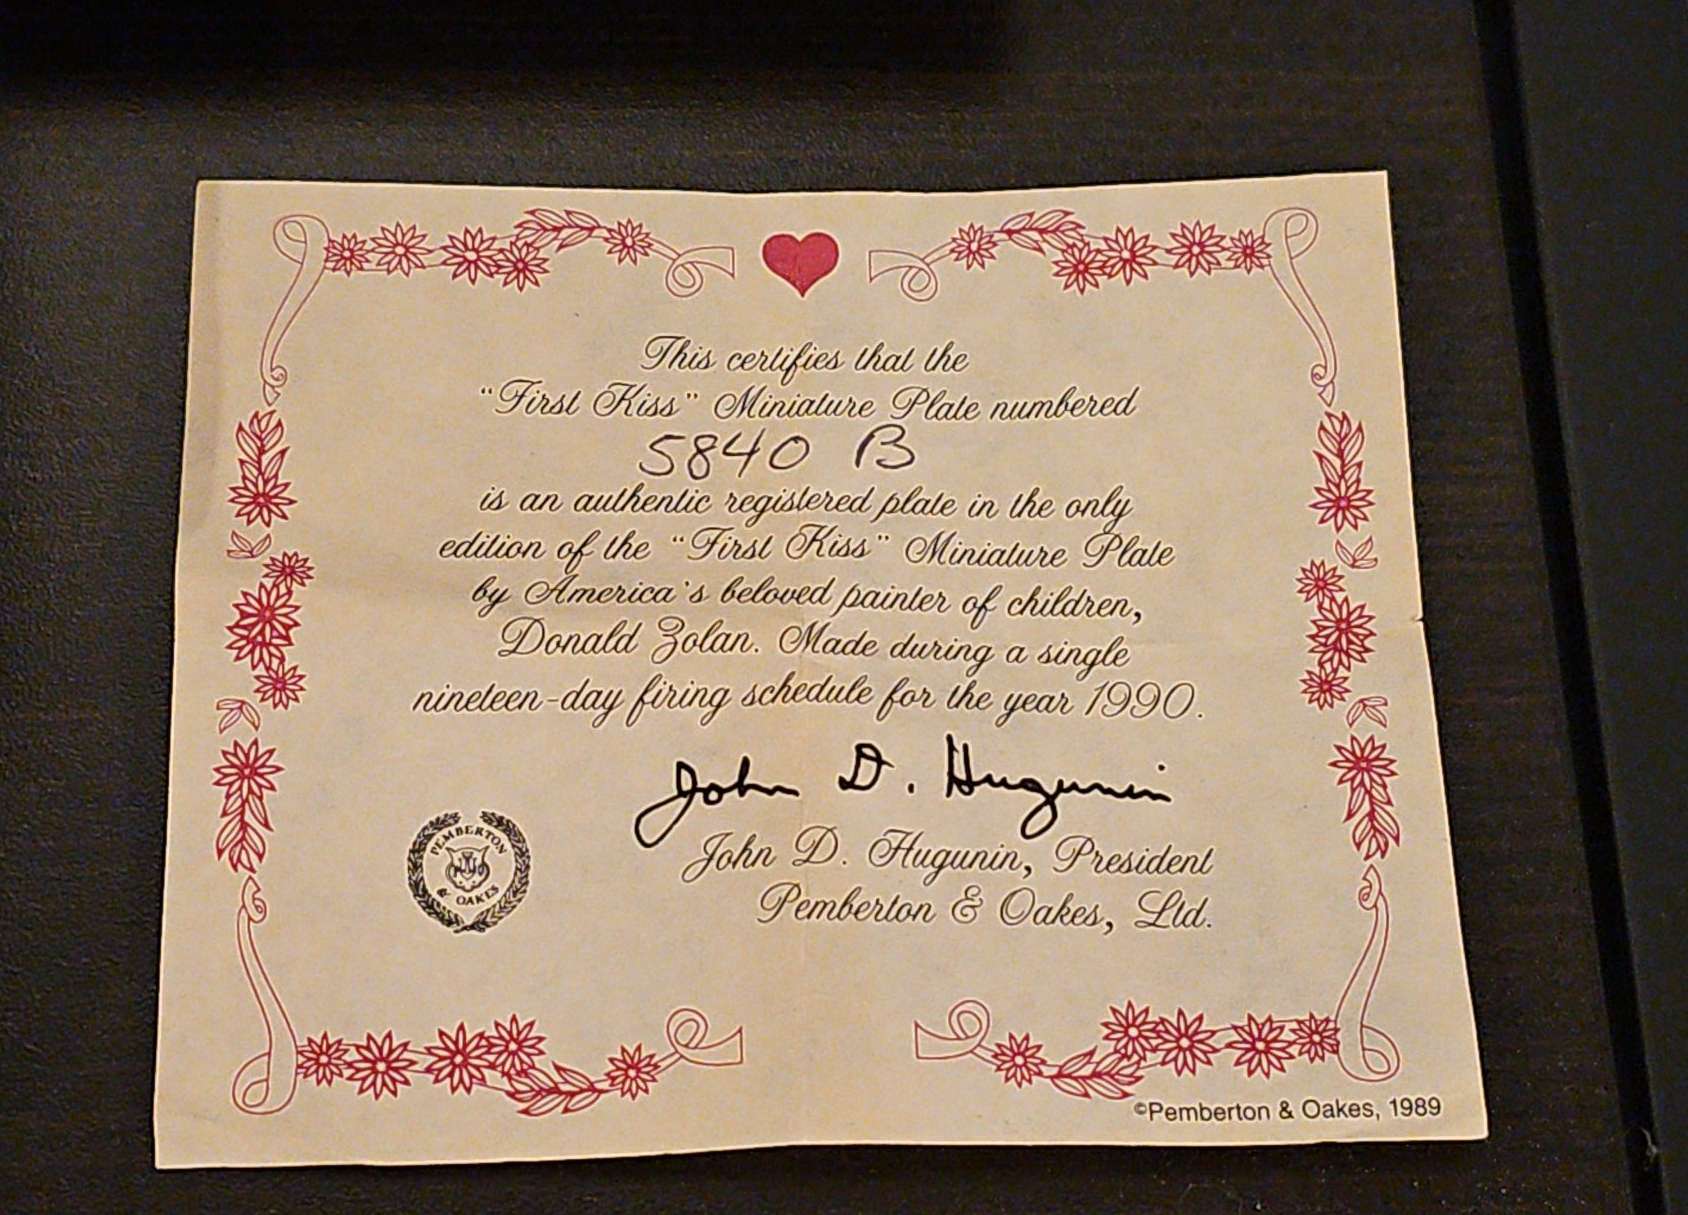 This certifies that the
"First Kiss" Miniature Plate numbered
5840 B
is an authentic registered plate in the only
edition of the "First Kiss" Miniature Plate
by America's beloved painter of children,
Donald Zolan. Made during a single
nineteen-day firing schedule for the year 1990.
John D. Hugunin
John D. Hugunin, President
Pemberton & Oakes, Ltd.
PEMBERTON
& OAKES
©Pemberton & Oakes, 1989